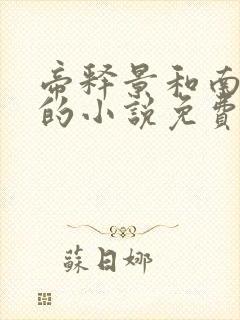 帝释景和南
的小說免費
蘇日娜